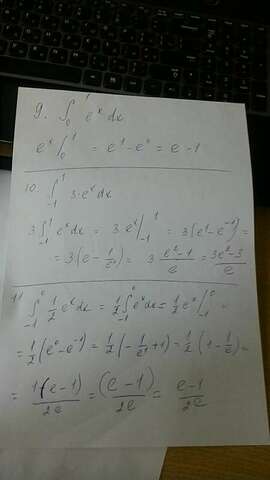 9. ∫₀¹ eˣ dx
eˣ |₀¹ = e¹ - e⁰ = e - 1
10. ∫₋₁¹ 3·eˣ dx
3∫₋₁¹ eˣ dx = 3·eˣ |₋₁¹ = 3(e¹ - e⁻¹) =
= 3·(e - 1/e¹) = 3 (e² - 1)/e = (3e² - 3)/e
11. ∫₋₁⁰ 1/2 eˣ dx = 1/2 ∫₋₁⁰ eˣ dx = 1/2 eˣ |₋₁⁰ =
= 1/2 (e⁰ - e⁻¹) = 1/2 (- 1/e¹ + 1) = 1/2 (1 - 1/e) =
= 1(e - 1)/2e = (e - 1)/2e = e - 1/2e